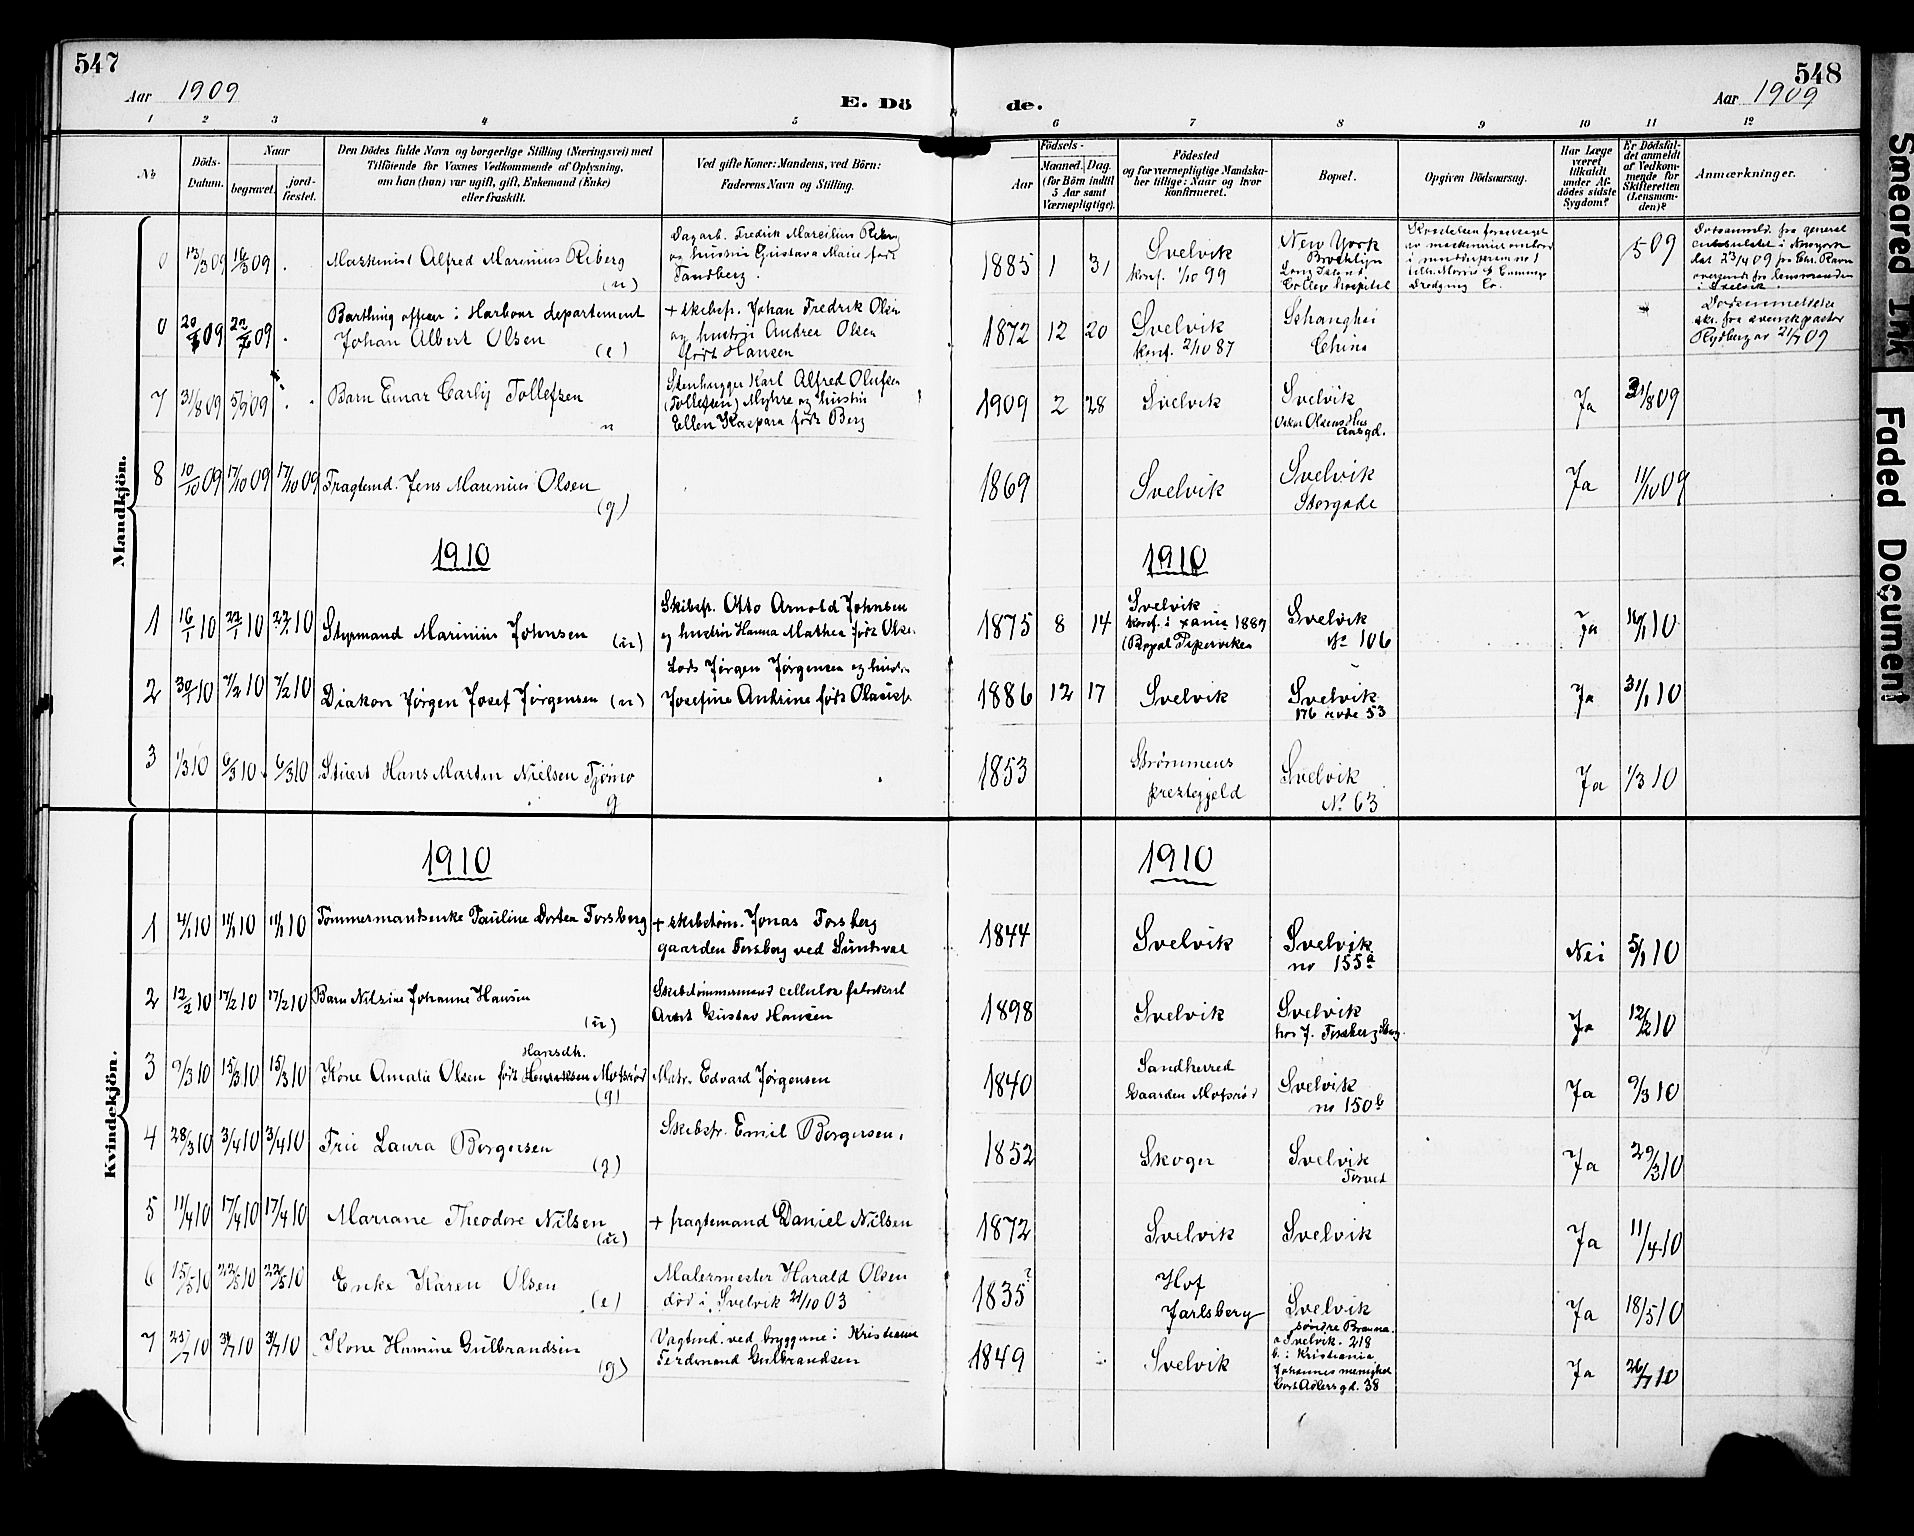 547
548
Aar 1909
E. Dö
de.
Aar 1909
1 2 3 4 5 6 7 8 9 10 11 12
No
Döds-
Datum.
Naar
begravet.
jord-
fæstet.
Den Dödes fulde Navn og borgerlige Stilling (Næringsvei) med
Tilföiende for Voxnes Vedkommende af Oplysning,
om han (hun) var ugift, gift, Enkemand (Enke)
eller fraskilt.
Ved gifte Koner: Mandens, ved Börn:
Faderens Navn og Stilling.
Födsels-
Aar
Maaned. Dag.
(for Börn indtil
5 Aar samt
Værnepligtige).
Födested
og for værnepligtige Mandska-
ber tillige: Naar og hvor
konfirmeret.
Bopæl.
Opgiven Dödsaarsag.
Har Læge
været
tilkaldt
under Af-
dödes sidste
Sygdom?
Er Dödsfal-
det anmeldt
af Vedkom-
mende for
Skifteretten
(Lensman-
den)?
Anmærkninger.
Mandkjön.
0 13/3 09 16/3 09 Maskinist Alfred Marinius Riberg (u)
Dagarb. Fredrik Marcilius Riberg
og hustru Gustava Marie født
Sandberg.
1885 1 31 Svelvik
konf. 1/10 99
New York
Brooklyn
Long Island
College hospital
5 09
i Svelvik.
0 20/ 09 22/ 09 Barthing officer i Harbour departement
Johan Albert Olsen (e)
+ skibsf. Johan Fredrik Olsen
og hustru Andrea Olsen
født Hansen
1872 12 20 Svelvik
konf. 2/10 87
Schanghei
China
Dødsmeldelse
skr. fra svensk pastor
Rydberg av 21/7 09
7 31/8 09 5/9 09 Barn Einar Carlij Tollefsen u
Stenhugger Karl Alfred Olufsen
(Tollefsen) Myhre og hustru
Ellen Kaspara født Berg
1909 2 28 Svelvik
Svelvik
Oskar Olsens Hus
Aasgd.
Ja 31/8 09
8 10/10 09 17/10 09 17/10 09 Fragtemd. Jens Marinius Olsen (g)
1869 Svelvik
Svelvik
Storgade
Ja 11/10 09
1910
1910
1 16/1 10 22/1 10 22/1 10 Styrmand Marinius Johnsen (u)
Skibsf. Otto Arnold Johnsen
og hustru Hanna Mathea født Olse.
1875 8 14 Svelvik
konf. i xania 1889
(Bopæl Piperviken
Svelvik
No 106
Ja 16/1 10
2 30/1 10 7/2 10 7/2 10 Diakon Jørgen Josef Jørgensen (u)
Lods Jørgen Jørgensen og hustru
Josefine Antrine født Olausf.
1886 12 17 Svelvik
Svelvik
176 rode 53
Ja 31/1 10
3 1/3 10 6/3 10 6/3 10 Stuert Hans Martin Nielsen Tjømo
g
1853 Strømmens
prestegjeld
Svelvik
No 63
Ja 1/3 10
Kvindekjön.
1910
1910
1 4/1 10 11/1 10 11/1 10 Tømmermandsenke Pauline Dortea Forsberg
+ skibstøm. Jonas Forsberg
gaarden Forsberg ved Sundsval
1844 Svelvik
Svelvik
no 155a
Nei 5/1 10
2 12/2 10 17/2 10 17/2 10 Barn Nilsine Johanne Hansen (u)
Skibstømmermand cellulose fabrikarb
Arnt Gustav Hansen
1898 Svelvik
Svelvik
hos J. Forsberg Storg.
Ja 12/2 10
Hansdtr.
3 9/3 10 15/3 10 15/3 10 Kone Amalie Olsen født Henriksen Mofsrød (g)
Matr. Edvard Jørgensen
1840 Sandherred
Gaarden Mofsrød
Svelvik
no 150b
Ja 9/3 10
4 28/3 10 3/4 10 3/4 10 Frú Laura Borgersen (g)
Skibsfr. Emil Borgersen.
1852 Skoger
Svelvik
Torvet
Ja 29/3 10
5 11/4 10 17/4 10 17/4 10 Mariane Theodore Nilsen (u)
+ fragtemand Daniel Nilsen
1872 Svelvik
Svelvik
Ja 11/4 10
6 15/5 10 22/5 10 22/5 10 Enke Karen Olsen (e)
Malermester Harald Olsen
død i Svelvik 21/10 03
1835? Hof
Jarlsberg
Svelvik
søndre Brenna.
Ja 18/5 10
7 25/7 10 31/7 10 31/7 10 Kone Hamine Gulbrandsen (g)
Vagtmd. ved bryggerne i Kristiania
Ferdinand Gulbrandsen
1849 Svelvik
a Svelvik. 218
b. i Kristiania
Johannes menighed
Cort Adlersgd. 38
Ja 26/7 10
Smeared Ink
Faded Document